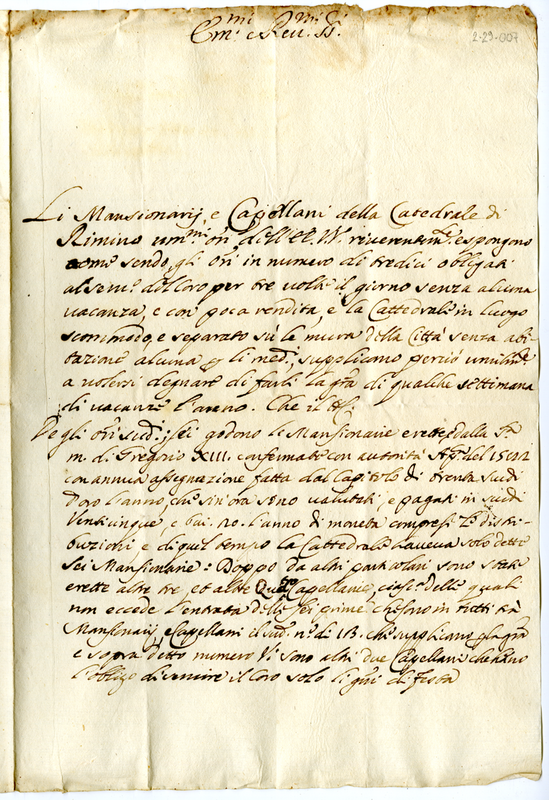 Em.mi e Rev.mi SS.ri
2-29-007
Li Mansionarij, e Capellani della Catedrale di
Rimino um.mi ori dell'EE. VV. riverentem.te espongono
come sendo gli ori in numero di tredici obligati
al serv.o del Coro per tre volte il giorno senza alcuna
vacanza, e con poca rendita, e la Cattedrale in luogo
scommodo, e separato sù le mura della Città senza abi-
tazione alcuna p li med.i, supplicano perciò umilm.te
a volersi degnare di farli la gra di qualche settimana
di vacanze l'anno. Che il tt.
Degli ori sud.i; sei godono le Mansionarie erette dalla
m. di Gregorio XIII. confermate con autorità Ap. del
con annua assegnazione fatta dal Capitolo di trenta scudi
d'oro l'anno, che sin'ora sono valutati, e pagati in scudi
Venticinque, e bai. 20. l'anno di moneta compresi le distri-
buzioni, e di quel tempo la Cattedrale haveva solo dette
sei Mansionarie: Doppo da altri particolari sono state
erette altre tre, et altre Quattro Capellanie, ciasc.a delle quali
non eccede l'entrata delle sei prime che sono in tutti trà
Mansionarij, e Capellani il sud. n.o di 13. che supplicano p la gra
e sopra detto numero vi sono altri due Capellani che hanno
l'obligo di servire il Coro solo li gni di festa